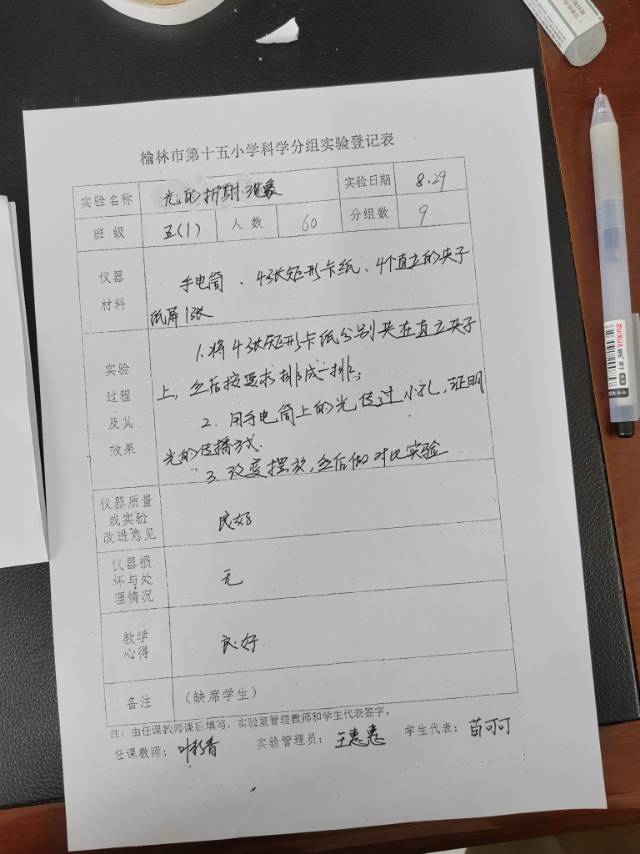 榆林市第十五小学科学分组实验登记表
实验名称 光的折射现象 实验日期 8.29
班级 五(1) 人数 60 分组数 9
仪器材料 手电筒、4张矩形卡纸、4个直立的夹子
纸屏1张
实验过程及其效果
1.将4张矩形卡纸分别夹在直立夹子
上,然后按要求排成一排;
2.用手电筒上的光透过小孔,证明
光的传播方式.
3.改变摆放,然后做对比实验
仪器质量或实验改进意见 良好
仪器损坏与处理情况 无
教学心得 良好
备注 (缺席学生)
注:由任课教师课后填写,实验室管理教师和学生代表签字。
任课教师: 实验管理员:王惠惠 学生代表:苗可可